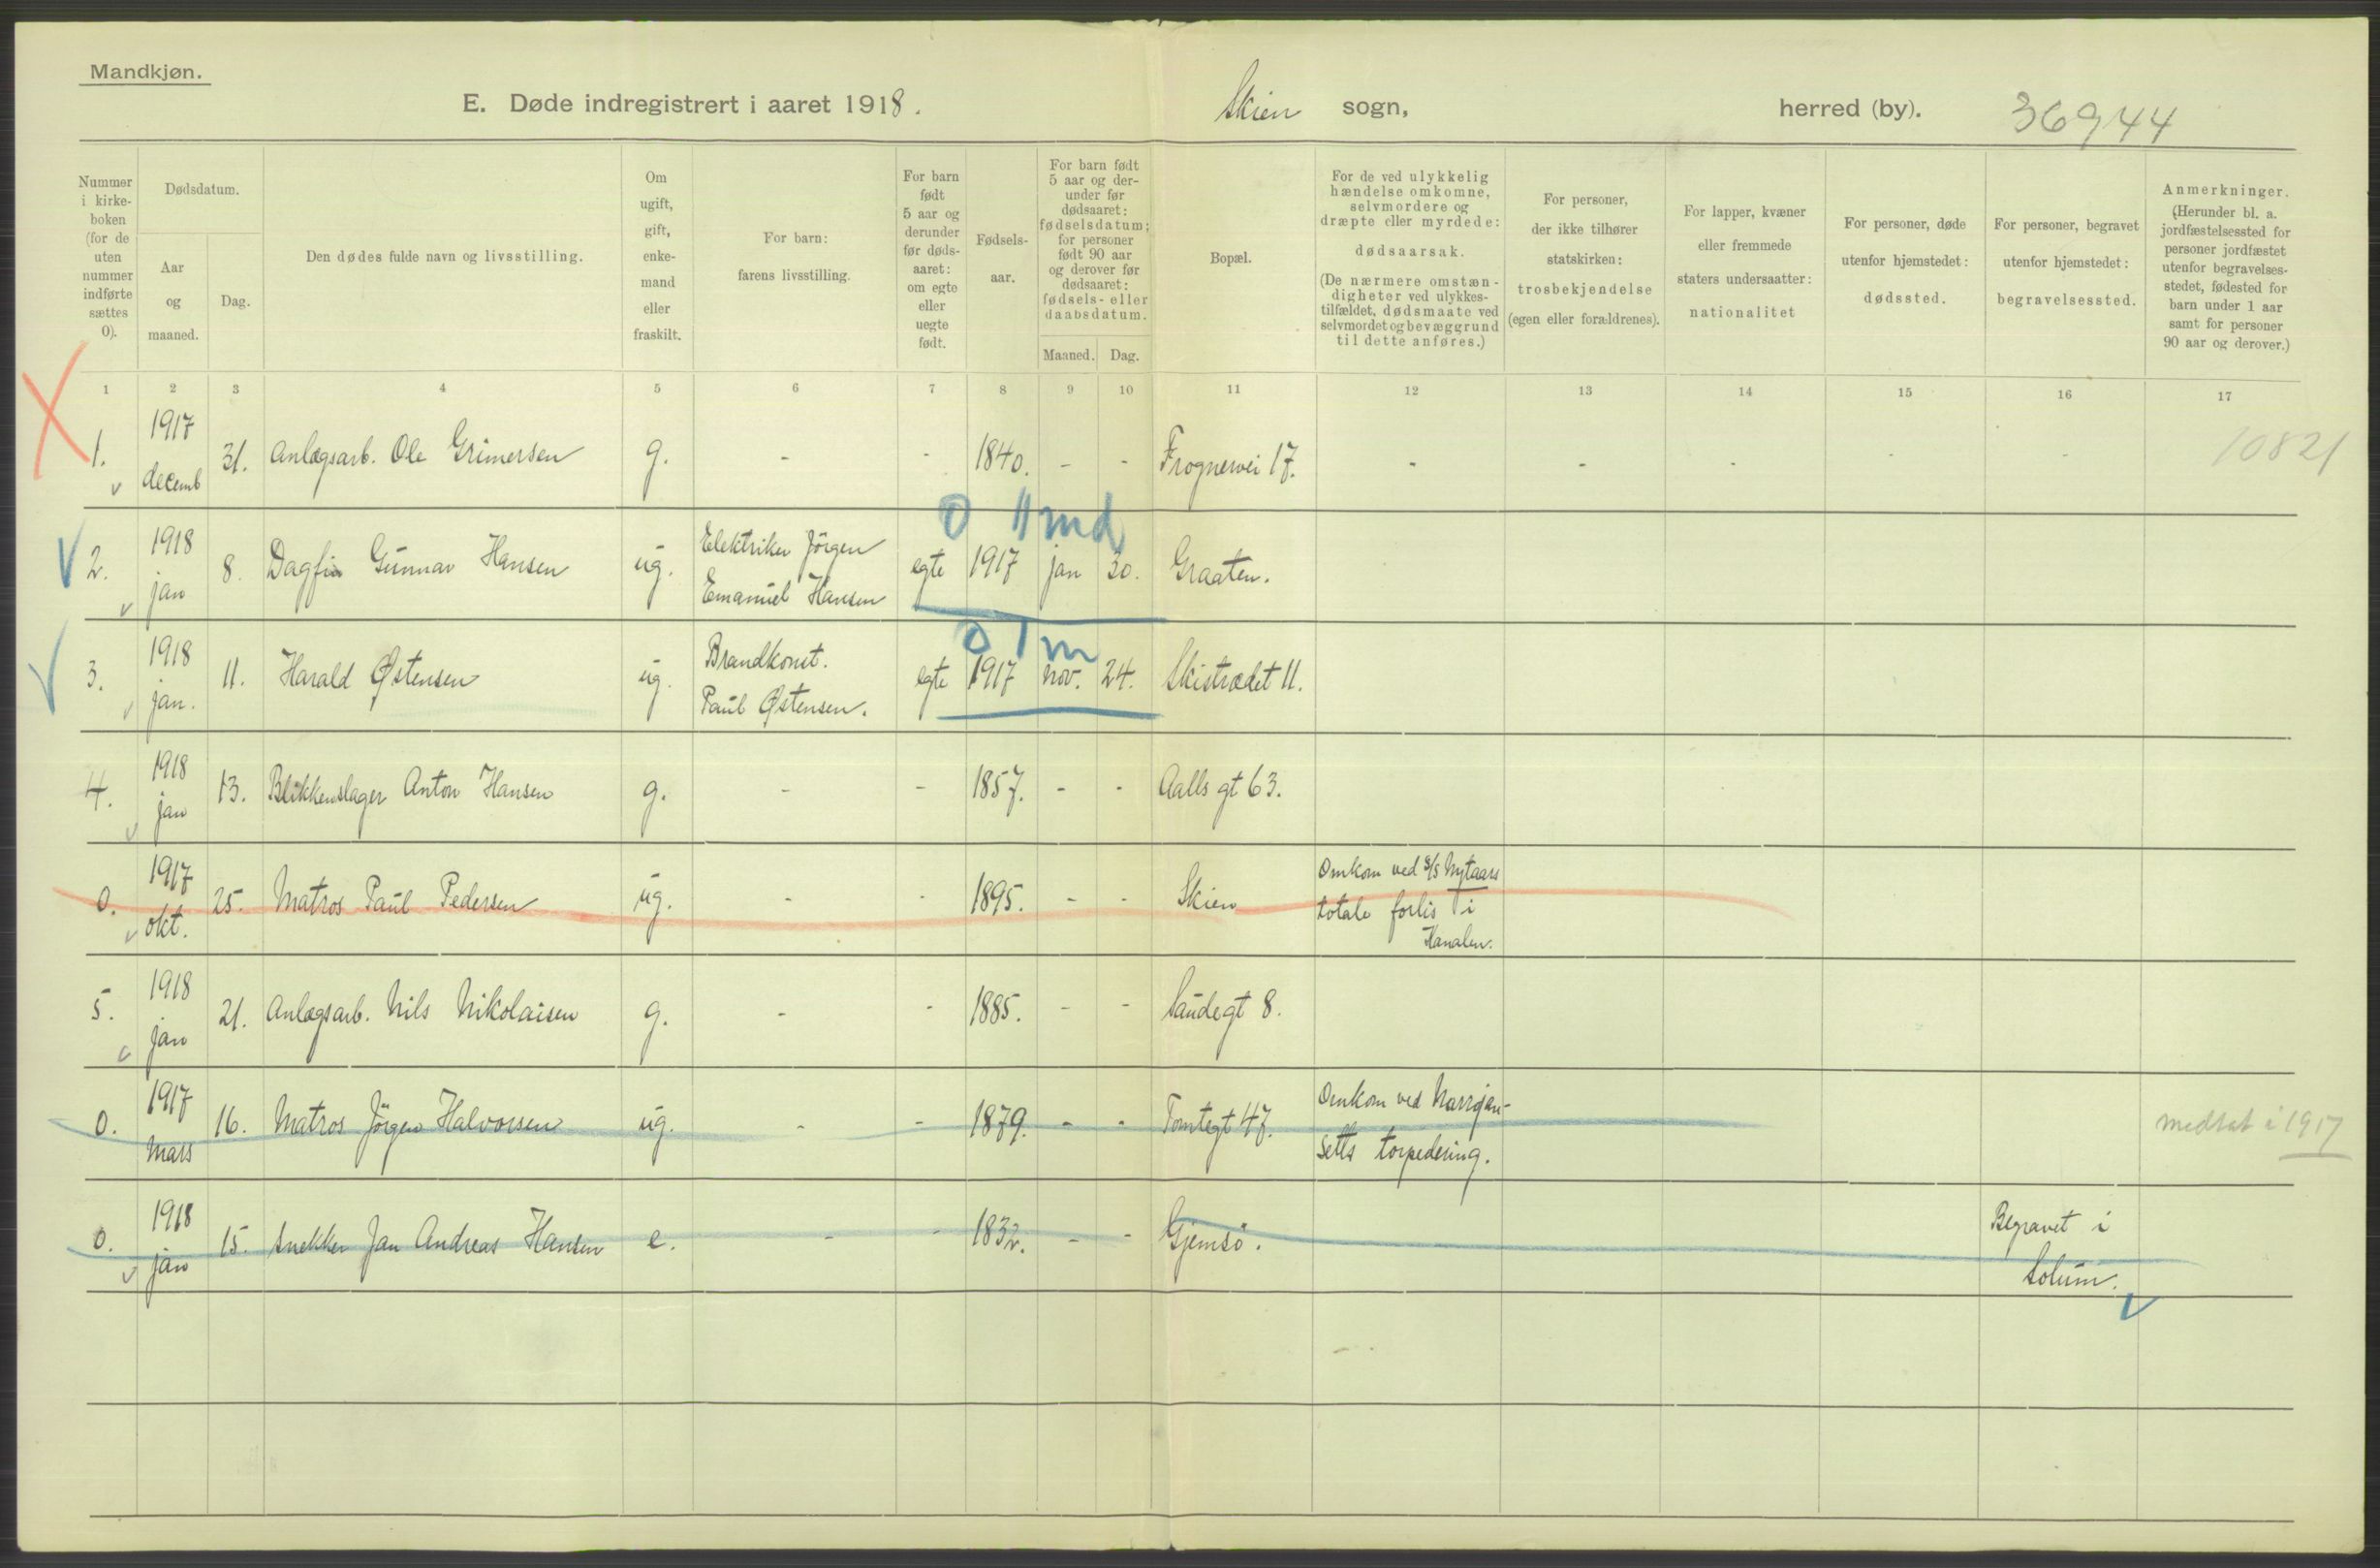 Mandkjøn.
E. Døde indregistrert i aaret 1918. Skien sogn, herred (by). 36944
Nummer i kirke-boken (for de uten nummer indførte sættes 0).
Dødsdatum.
Aar og maaned.
Dag.
Den dødes fulde navn og livsstilling.
Om ugift, gift, enke-mand eller fraskilt.
For barn: farens livsstilling.
For barn født 5 aar og derunder før døds-aaret: om egte eller uegte født.
Fødsels-aar.
For barn født 5 aar og der-under før dødsaaret: fødselsdatum; for personer født 90 aar og derover før dødsaaret: fødsels- eller daabsdatum.
Maaned. Dag.
Bopæl.
For de ved ulykkelig hændelse omkomne, selvmordere og dræpte eller myrdede: dødsaarsak. (De nærmere omstæn-digheter ved ulykkes-tilfældet, dødsmaate ved selvmordet og bevæggrund til dette anføres.)
For personer, der ikke tilhører statskirken: trosbekjendelse (egen eller forældrenes).
For lapper, kvæner eller fremmede staters undersaatter: nationalitet
For personer, døde utenfor hjemstedet: dødssted.
For personer, begravet utenfor hjemstedet: begravelsessted.
Anmerkninger. (Herunder bl. a. jordfæstelsessted for personer jordfæstet utenfor begravelses-stedet, fødested for barn under 1 aar samt for personer 90 aar og derover.)
1 2 3 4 5 6 7 8 9 10 11 12 13 14 15 16 17
1. 1917 decemb 31. Anlægsarb. Ole Grimersen g. - - 1840. - - Frognervei 17. - - - - - 10821
0 11 md
2. 1918 jan 8. Dagfin Gunnar Hansen ug. Elektriker Jörgen Emanuel Hansen egte 1917 jan 30. Graaten.
0 1 m
3. 1918 jan. 11. Harald Østensen ug. Brandkonst. Paul Østensen. egte 1917 nov. 24. Skistrædet 11.
4. 1918 jan 13. Blikkenslager Anton Hansen g. - - 1857. - - Aalls gt 63.
0. 1917 okt. 25. Matros Paul Pedersen ug. - - 1895. - - Skien Omkom ved s/s Nytaars totale forlis i Kanalen.
5. 1918 jan 21. Anlægsarb. Nils Nikolaisen g. - - 1885. - - Saudegt 8.
0. 1917 Mars 16. Matros Jörgen Halvorsen ug. - - 1879. - - Tomtegt 47. Omkom ved torpedering. medtat i 1917
0. 1918 jan 15. Snekker Jan Andreas Hansen e. - - 1832. - - Gjemsö. Begravet i Solum.